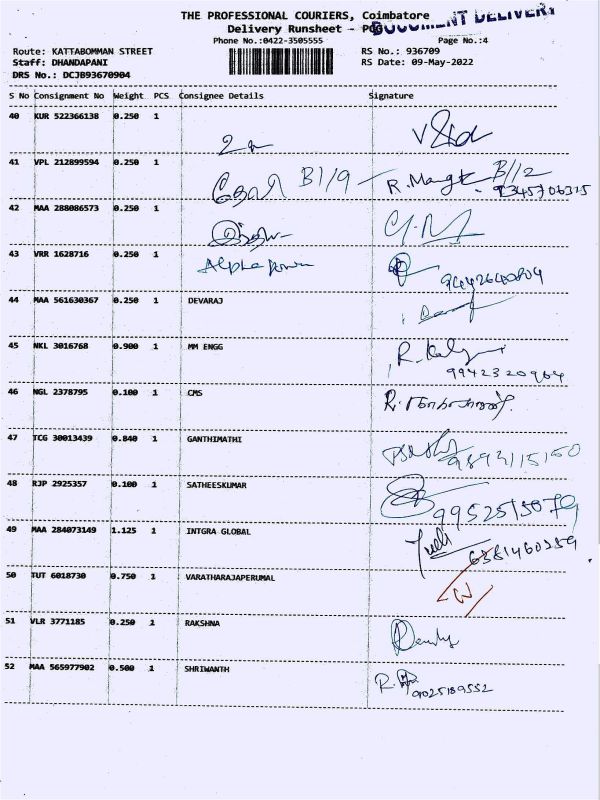 THE PROFESSIONAL COURIERS, Coimbatore
DOCUMENT DELIVERY
Delivery Runsheet - PCG
Phone No.:0422-3505555 Page No.:4
Route: KATTABOMMAN STREET RS No.: 936709
Staff: DHANDAPANI RS Date: 09-May-2022
DRS No.: DCJB93670904
S No Consignment No Weight PCS Consignee Details Signature
40 KUR 522366138 0.250 1
41 VPL 212899594 0.250 1 B1/9 R. B/12
9345706315
42 MAA 288086573 0.250 1
43 VRR 1628716 0.250 1 Alpha power
9442640804
44 MAA 561630367 0.250 1 DEVARAJ
45 NKL 3016768 0.900 1 MM ENGG R.
9942320964
46 NGL 2378795 0.100 1 CMS R.
47 TCG 30013439 0.840 1 GANTHIMATHI
48 RJP 2925357 0.100 1 SATHEESKUMAR
9952515079
49 MAA 284073149 1.125 1 INTGRA GLOBAL
6381460359
50 TUT 6018730 0.750 1 VARATHARAJAPERUMAL
51 VLR 3771185 0.250 1 RAKSHNA
52 MAA 565977902 0.500 1 SHRIWANTH R.
9025189552